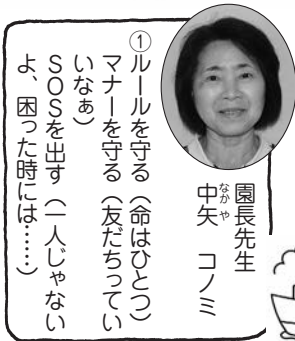 園長先生
中矢　コノミ
なかや
①ルールを守る（命はひとつ）
マナーを守る（友だちってい
いなぁ）
SOSを出す（一人じゃない
よ、困った時には……）